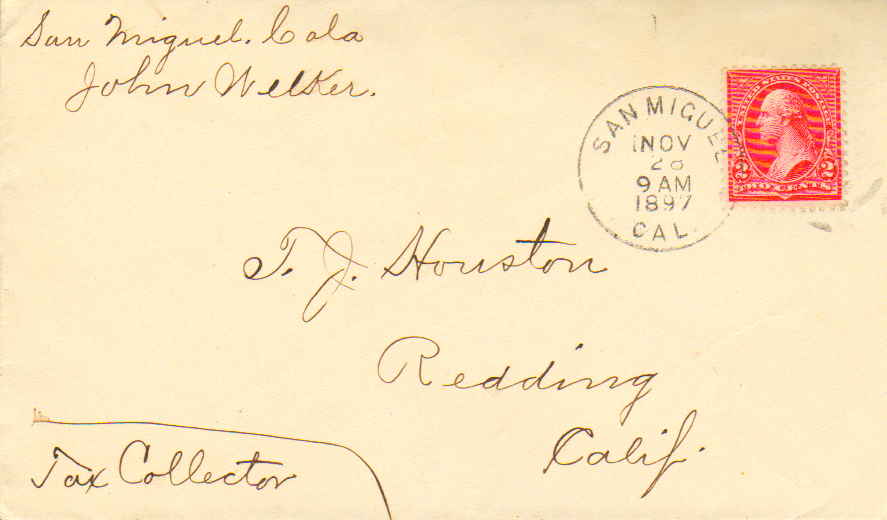 San Miguel. Cala
John Welker.
SAN MIGUEL
NOV
28
9 AM
1897
CAL.
UNITED STATES POSTAGE
2 2
TWO CENTS
T. J. Houston
Redding
Calif.
Tax Collector